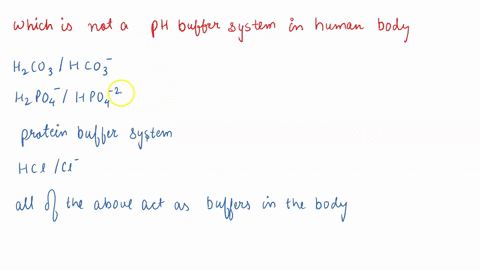 which is not a pH buffer system in human body
H₂CO₃ / HCO₃⁻
H₂PO₄⁻ / HPO₄⁻²
protein buffer system
HCl / Cl⁻
all of the above act as buffers in the body